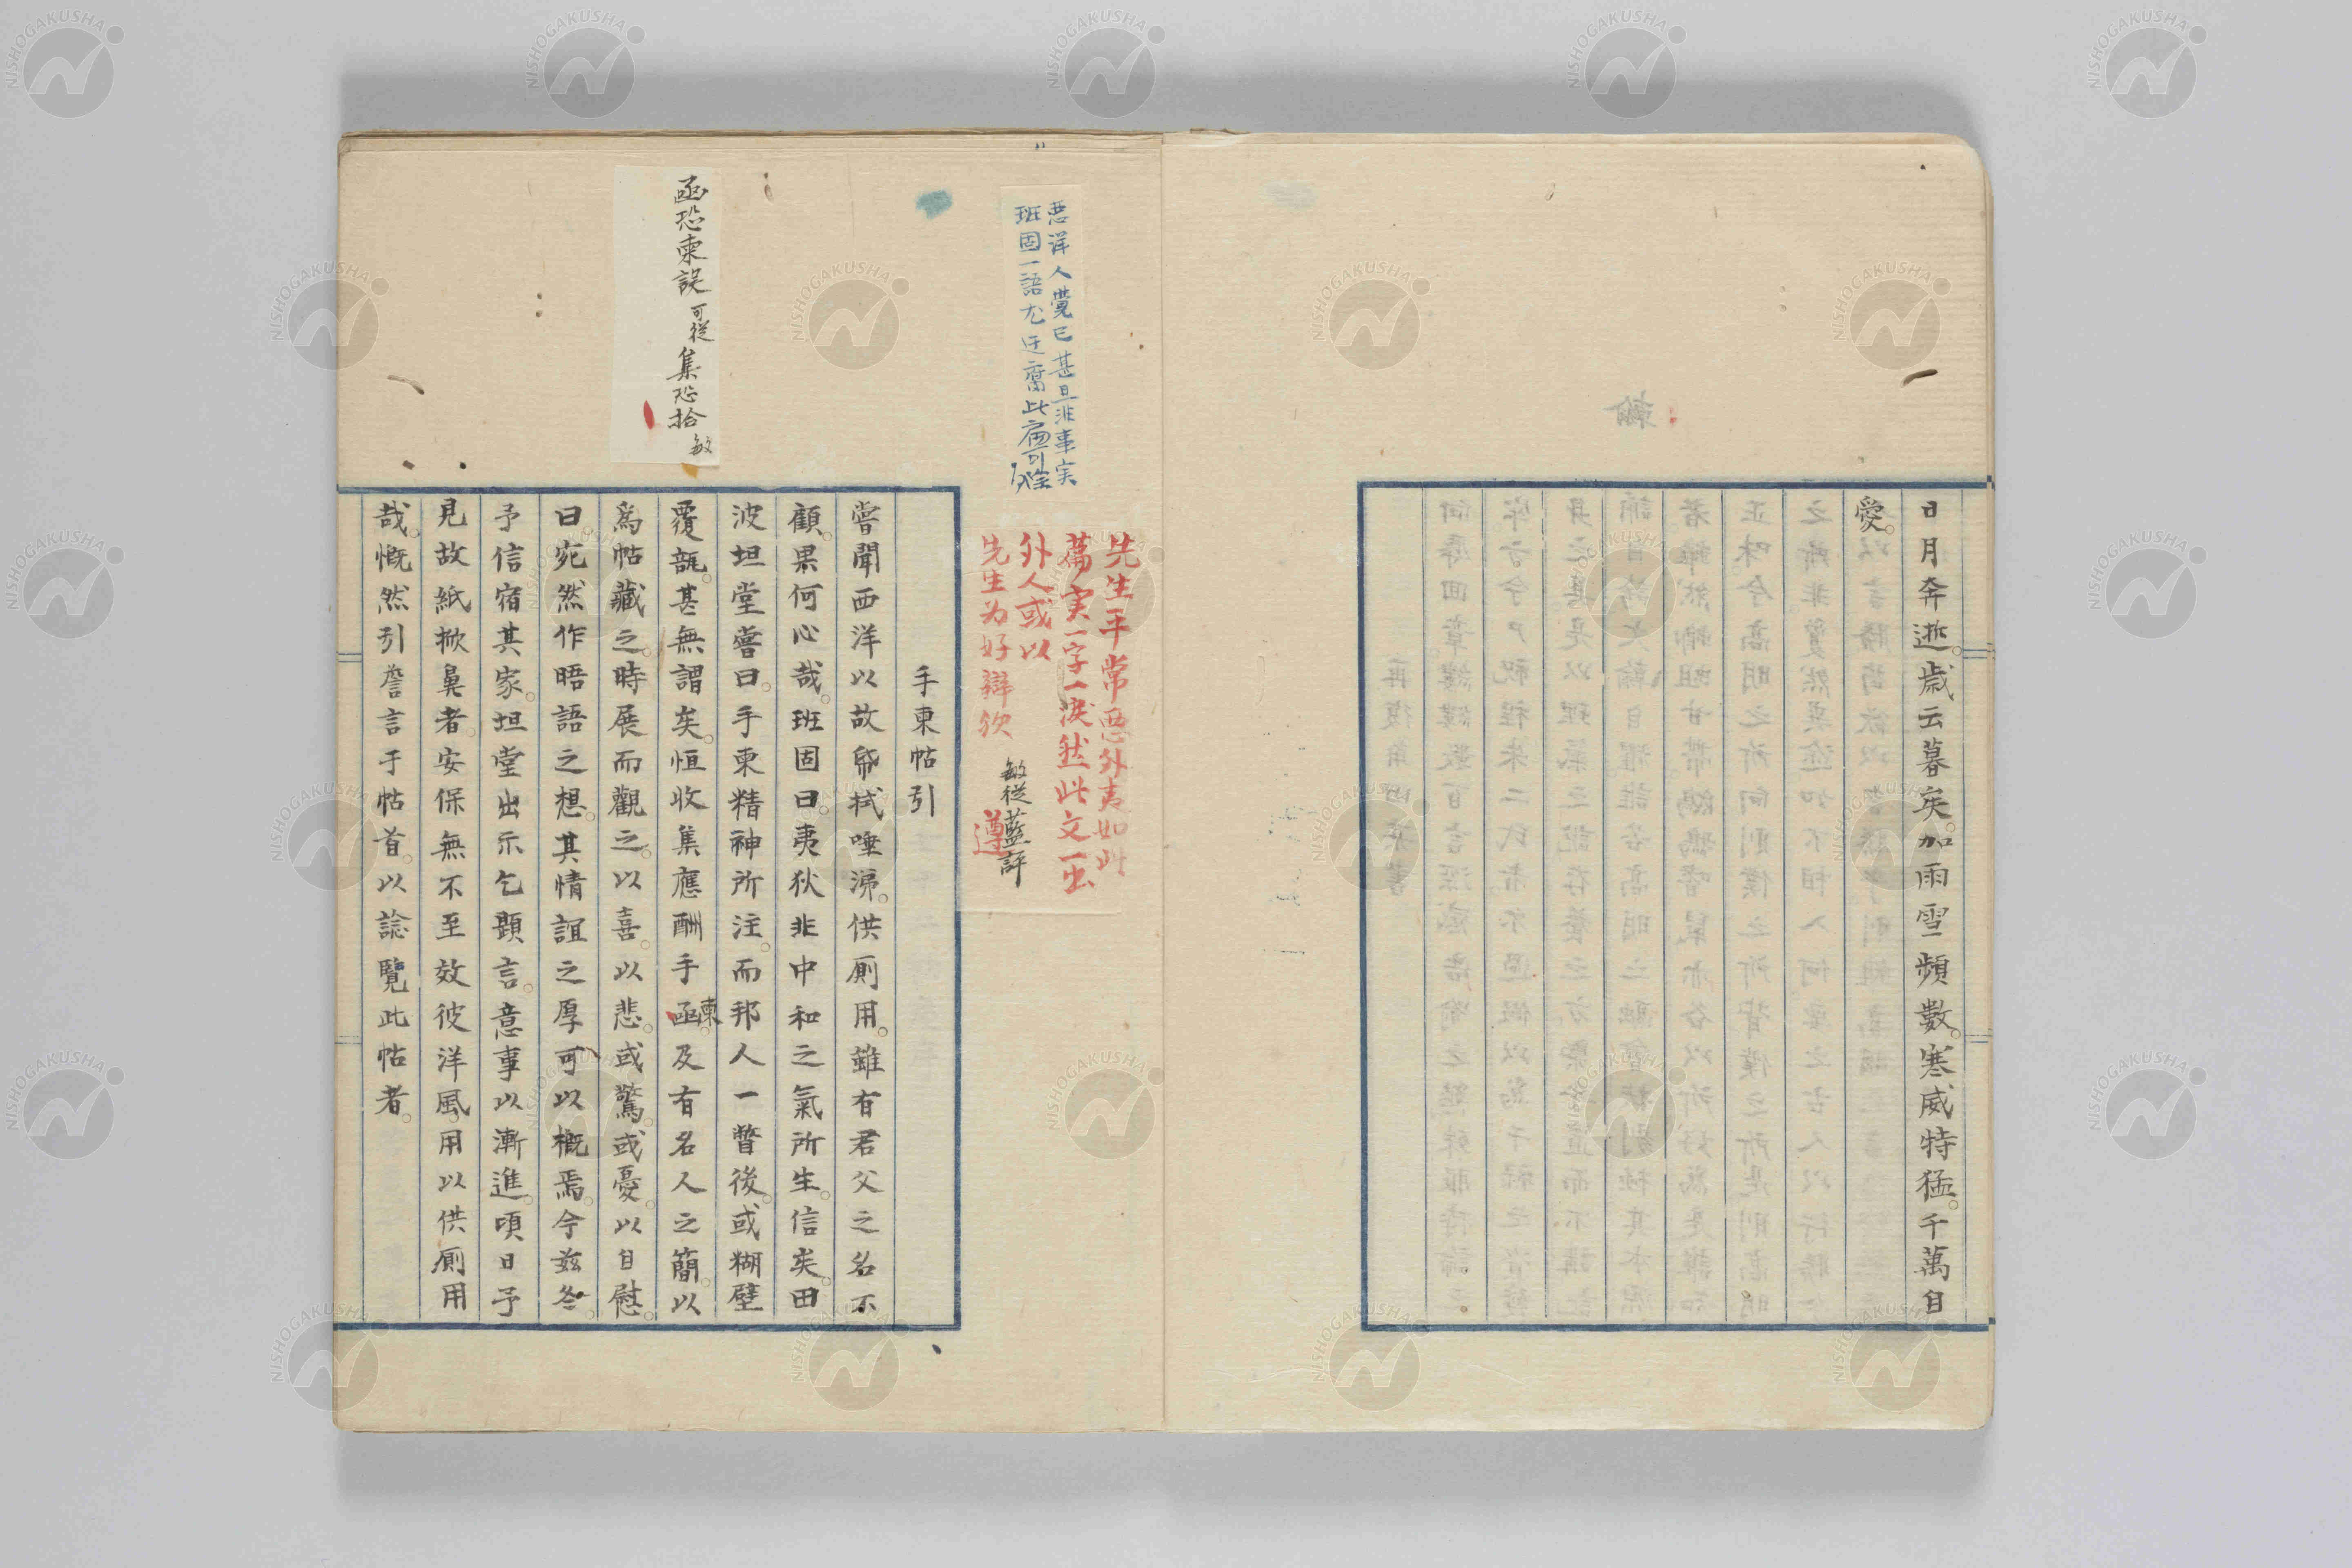 日月奔逝。歲云暮矣。加雨雪頻數。寒威特猛。千萬自
愛。
惡洋人覺已甚且非事実
班固一語尤迂腐此篇可除
先生平常惡外夷如此
篇実一字一淚然此文一出
外人或以
先生为好辯欤
敏従藍評
遵
手柬帖引
嘗聞西洋以故帋拭唾涕。供厠用。雖有君父之名不
顧。果何心哉。班固曰。夷狄非中和之氣所生。信矣。田
波坦堂嘗曰。手柬精神所注。而邦人一瞥後。或糊壁
覆瓿。甚無謂矣。恒收集應酬手函柬。及有名人之簡。以
爲帖藏之。時展而觀之。以喜。以悲。或驚。或憂。以自慰。
曰。宛然作晤語之想。其情誼之厚。可以概焉。今茲冬。
予信宿其家。坦堂出示乞題言。意事以漸進。頃日予
見故紙掀鼻者。安保無不至效彼洋風。用以供厠用
哉。慨然引詹言于帖首。以諗覽此帖者。
函恐柬誤 可従 集恐拾 敏
NISHOGAKUSHA